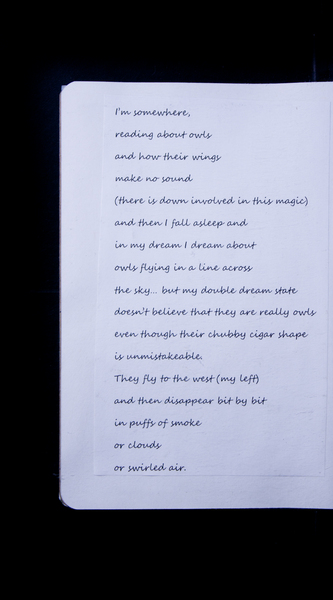 I'm somewhere,
reading about owls
and how their wings
make no sound
(there is down involved in this magic)
and then I fall asleep and
in my dream I dream about
owls flying in a line across
the sky... but my double dream state
doesn't believe that they are really owls
even though their chubby cigar shape
is unmistakeable.
They fly to the west (my left)
and then disappear bit by bit
in puffs of smoke
or clouds
or swirled air.